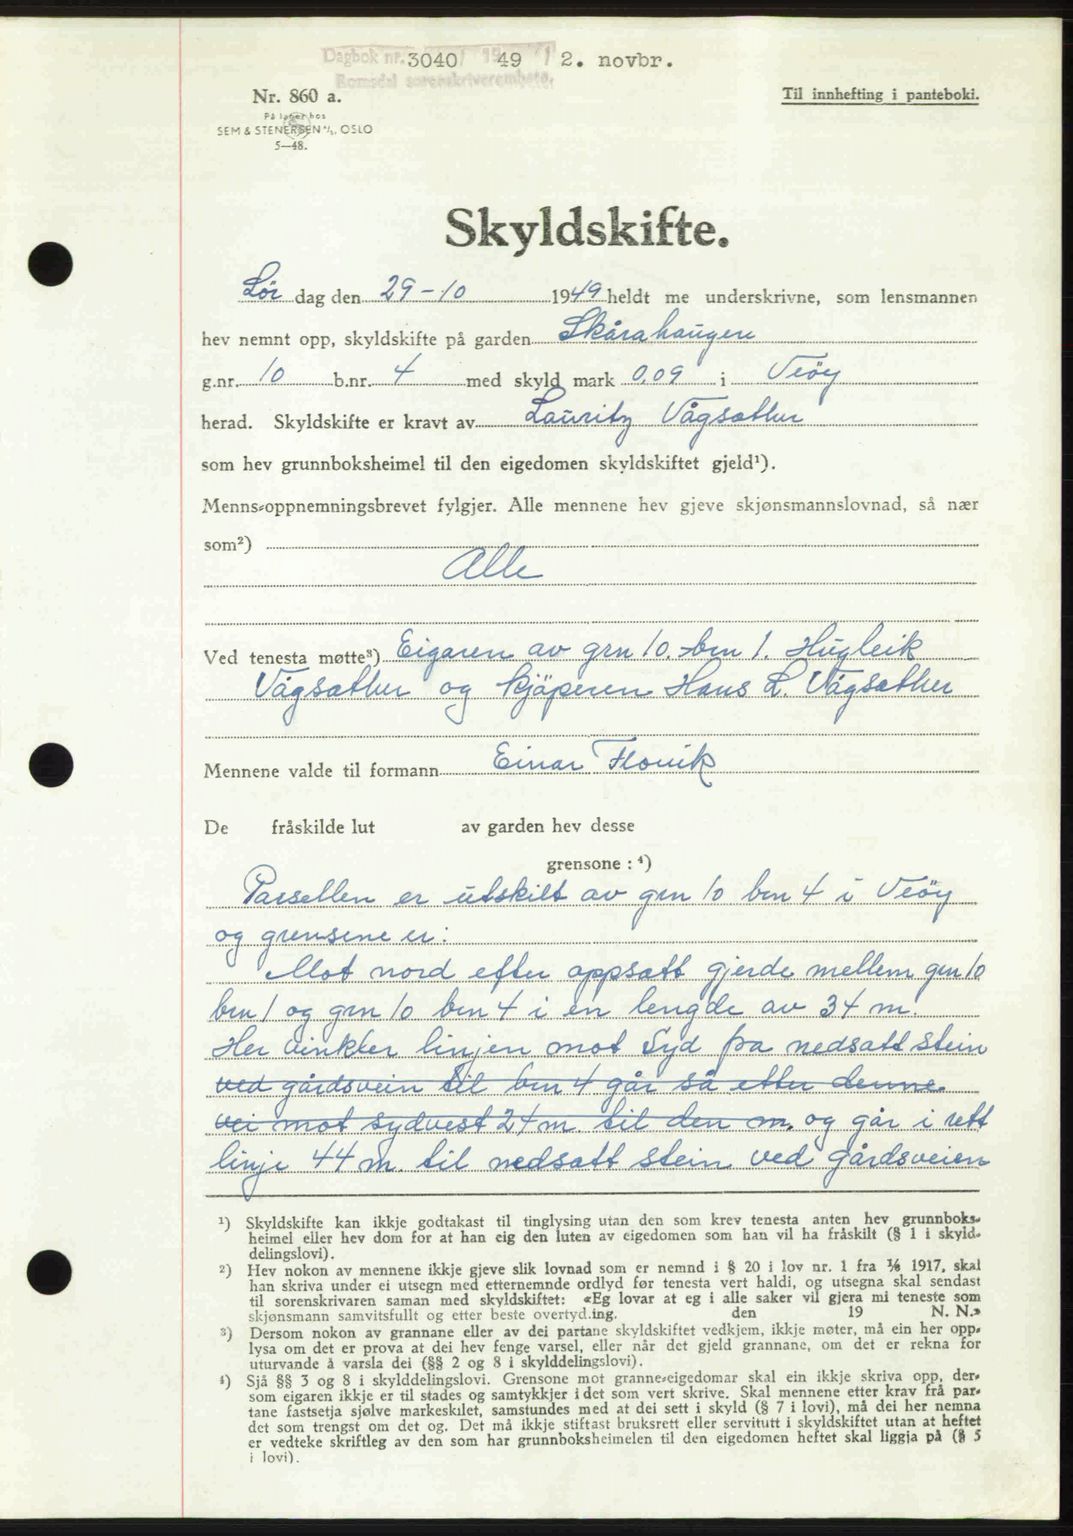 Dagbok nr. 3040 1949 / 2. novbr.
Romsdal sorenskriverembete.
Nr. 860 a.
Til innhefting i panteboki.
På lager hos
SEM & STENERSEN A/S, OSLO
5—48.
Skyldskifte.
Lør dag den 29-10 1949 heldt me underskrivne, som lensmannen
hev nemnt opp, skyldskifte på garden Skårahaugen
g.nr. 10 b.nr. 4 med skyld mark 0,09 i Veöy
herad. Skyldskifte er kravt av Lauritz Vågsæther
som hev grunnboksheimel til den eigedomen skyldskiftet gjeld¹).
Menns-oppnemningsbrevet fylgjer. Alle mennene hev gjeve skjønsmannslovnad, så nær
som²)
Alle
Ved tenesta møtte³) Eigaren av grn 10. brn 1. Hugleik
Vågsæther og kjöperen Hans L. Vågsæther
Mennene valde til formann Einar Flovik
De fråskilde lut av garden hev desse
grensone : ⁴)
Parsellen er utskilt av grn 10 brn 4 i Veöy
og grensene er:
Mot nord efter oppsatt gjerde mellem grn 10
brn 1 og grn 10 brn 4 i en lengde av 34 m.
Her vinkler linjen mot Syd fra nedsatt stein
ved gårdsvein til brn 4 går så etter denne
vei mot sydvest 24 m. til den m. og går i rett
linje 44 m. til nedsatt stein ved gårdsveien
¹) Skyldskifte kan ikkje godtakast til tinglysing utan den som krev tenesta anten hev grunnboks-
heimel eller hev dom for at han eig den luten av eigedomen som han vil ha fråskilt (§ 1 i skyld-
delingslovi).
²) Hev nokon av mennene ikkje gjeve slik lovnad som er nemnd i § 20 i lov nr. 1 fra ⅙ 1917, skal
han skriva under ei utsegn med etternemnde ordlyd før tenesta vert haldi, og utsegna skal sendast
til sorenskrivaren saman med skyldskiftet: «Eg lovar at eg i alle saker vil gjera mi teneste som
skjønsmann samvitsfullt og etter beste overtyding. den 19 N. N.»
³) Dersom nokon av grannane eller av dei partane skyldskiftet vedkjem, ikkje møter, må ein her opp-
lysa om det er prova at dei hev fenge varsel, eller når det gjeld grannane, om det er rekna for
uturvande å varsla dei (§§ 2 og 8 i skylddelingslovi).
⁴) Sjå §§ 3 og 8 i skylddelingslovi. Grensone mot granne-eigedomar skal ein ikkje skriva opp, der-
som eigaren ikkje er til stades og samtykkjer i det som vert skrive. Skal mennene etter krav frå par-
tane fastsetja sjølve markeskilet, samstundes med at dei sett i skyld (§ 7 i lovi), må dei her nemna
det som trengst om det og. Det må ikkje stiftast bruksrett eller servitutt i skyldskiftet utan at heftet
er vedteke skriftleg av den som har grunnboksheimelen til den eigedomen heftet skal liggja på (§ 5
i lovi).